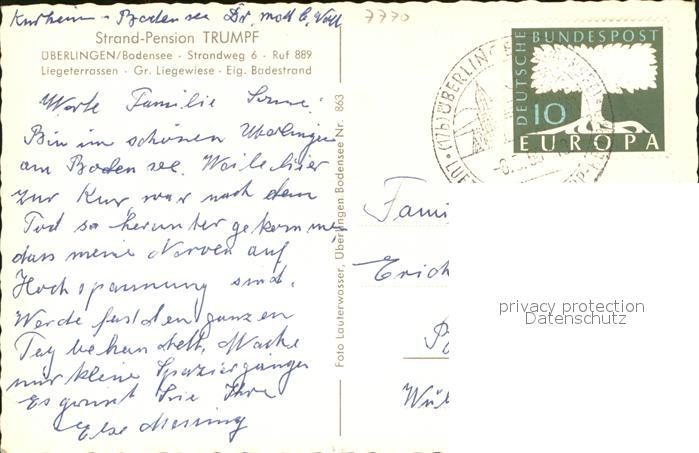 Kurheim - Bodensee Dr. med.
7770
Strand-Pension TRUMPF
ÜBERLINGEN/Bodensee · Strandweg 6 · Ruf 889
Liegeterrassen · Gr. Liegewiese · Eig. Badestrand
Werte Familie
Bin im schönen Überlingen
am Bodensee. Weile hier
zur Kur, war nach dem
Tod so heruntergekommen
dass meine Nerven auf
Hochspannung sind.
Werde fast den ganzen
Tag behandelt, Mache
nur kleine Spaziergänge
Es grüsst Sie Ihre
Else Messing
Foto Lauterwasser, Überlingen Bodensee Nr. 863
DEUTSCHE BUNDESPOST
10
EUROPA
(17b) ÜBERLINGEN
Fami
Erich
Wü
privacy protection
Datenschutz